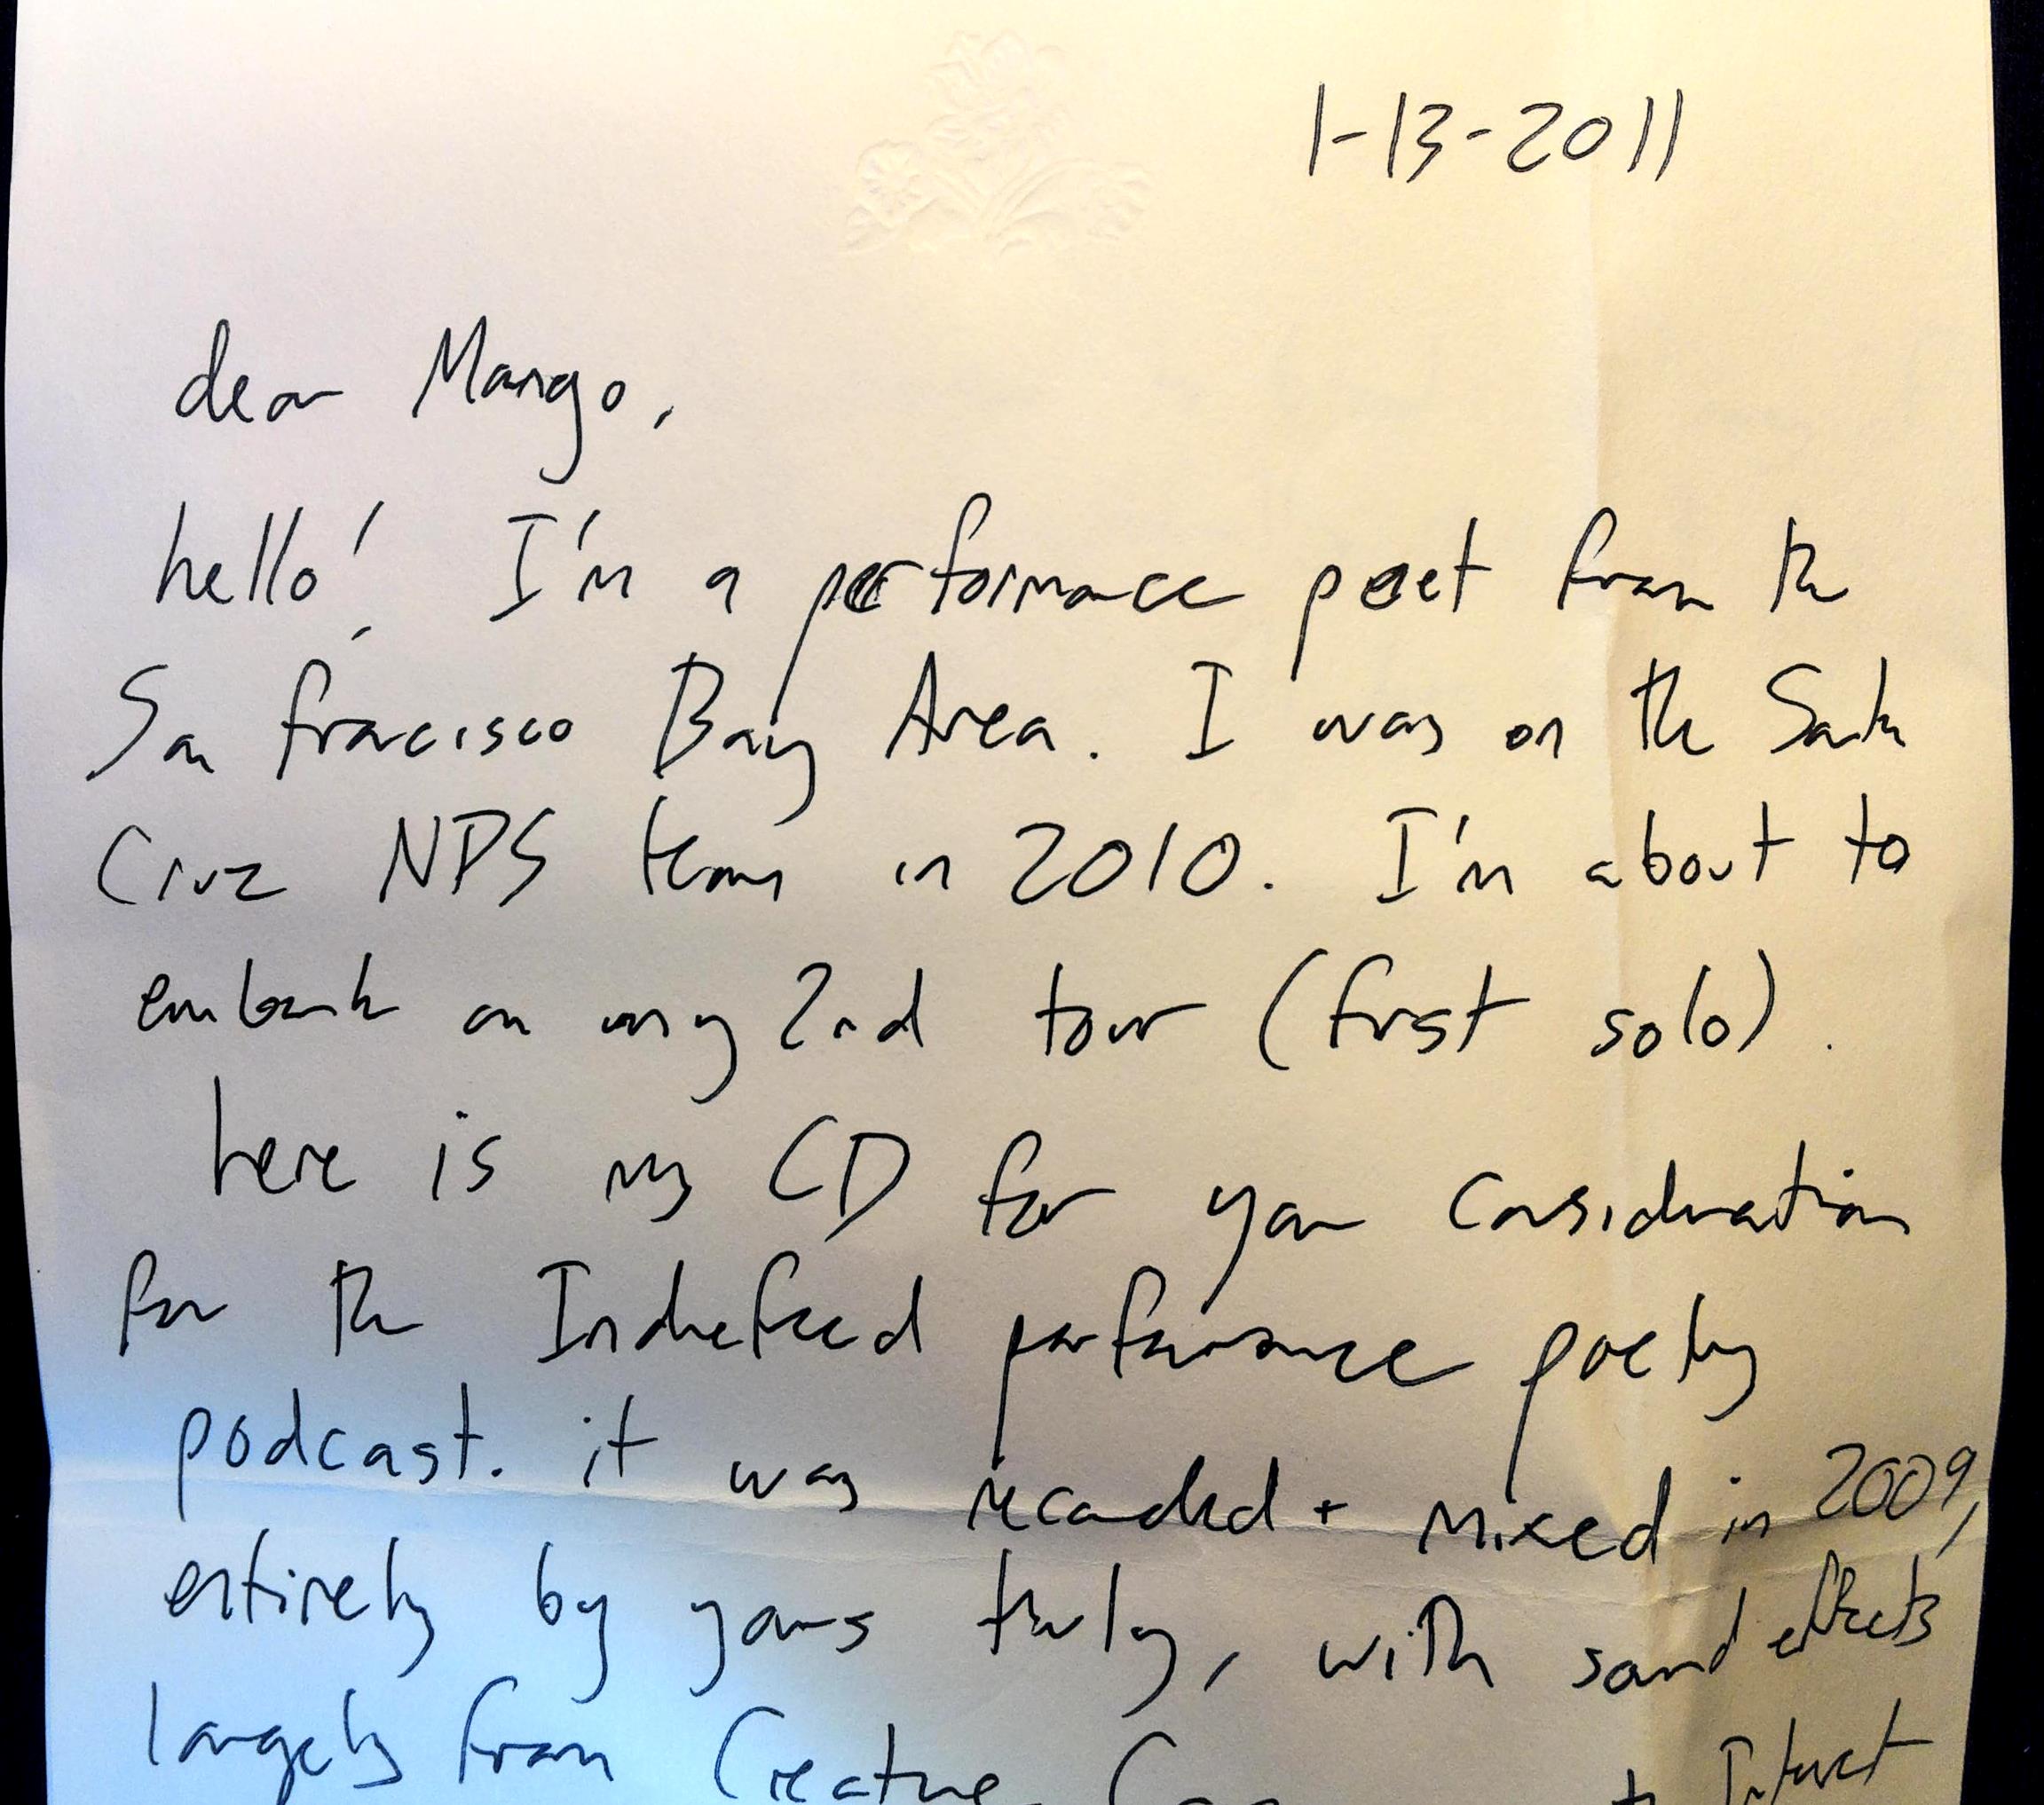 1-13-2011
dear Mango,
hello! I'm a performance poet from the
San francisco Bay Area. I was on the Santa
Cruz NPS team in 2010. I'm about to
embark on my 2nd tour (first solo).
here is my CD for your consideration
for the Indiefeed performance poetry
podcast. it was recorded + mixed in 2009,
entirely by yours truly, with sound effects
largely from Creative